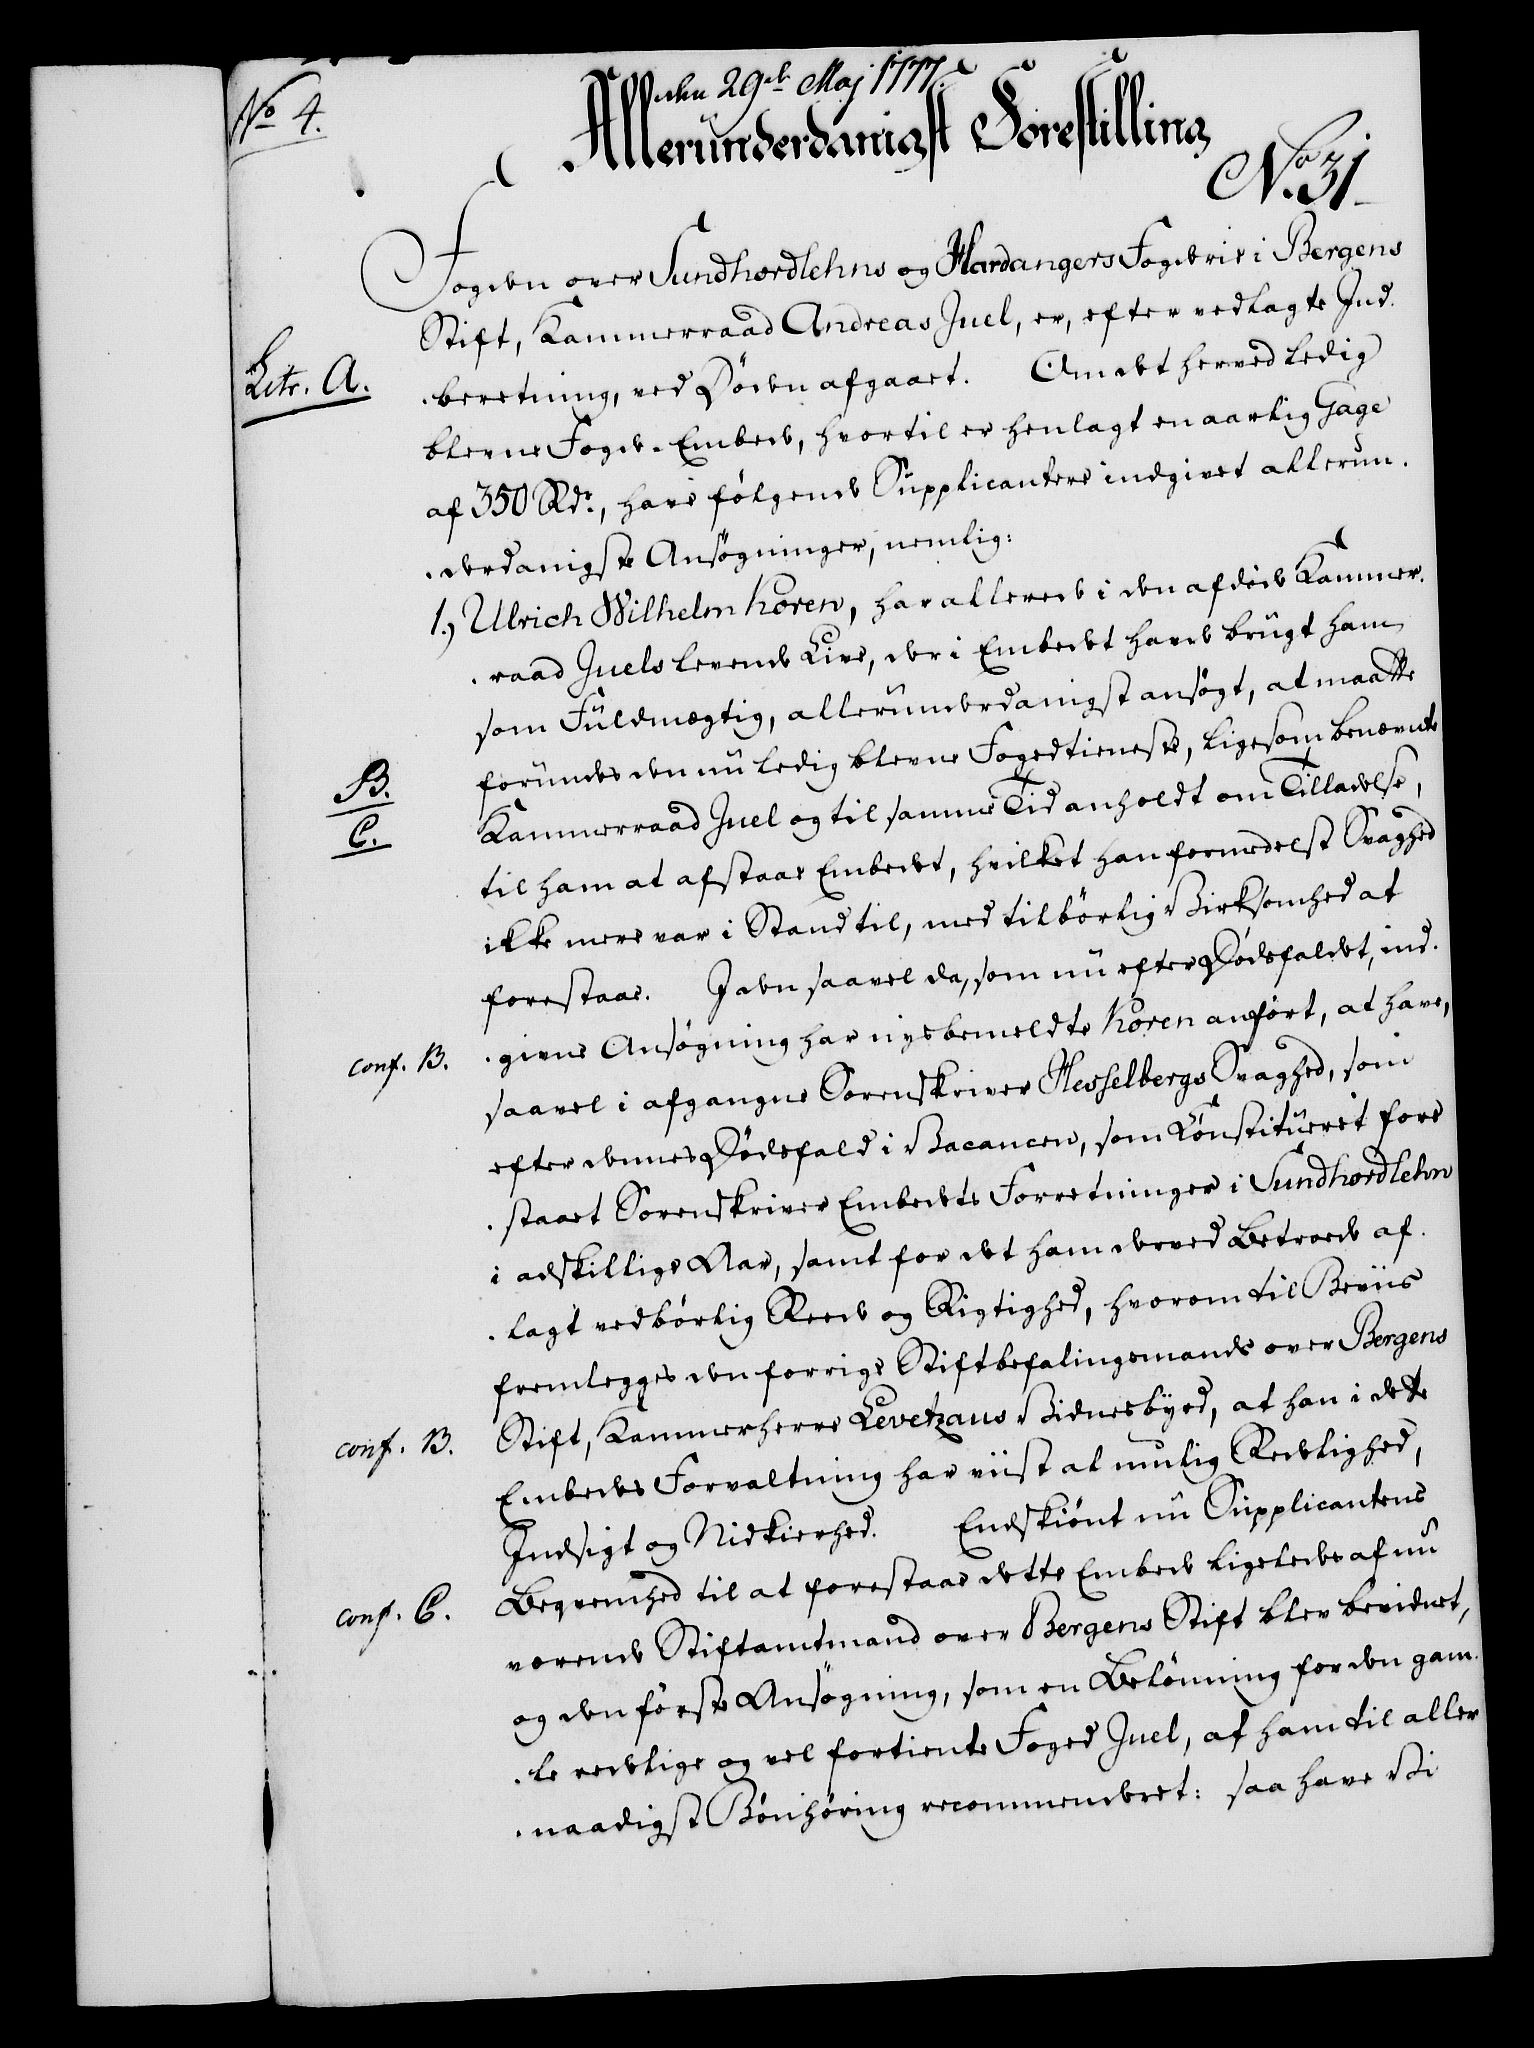 No 4.
den 29de Maj 1777.
Allerunderdanigst Forestilling
No. 31
Fogden over Sundhordlehns og Hardangers Fogderie i Bergens
Stift, Kammerraad Andreas Juel, er, efter vedlagte Ind-
Litr. A.
beretning, ved Døden afgaaet. Om det herved ledig
blevne Fogd-Embede, hvortil er henlagt en aarlig Gage
af 350 Rdr., have følgende Supplicantere indgivet allerun-
derdanigste Ansøgninger, nemlig:
1.) Ulrich Wilhelm Koren, har allerede i den afdøde Kammer-
raad Juels levende Live, der i Embedet havde brugt ham
som Fuldmægtig, allerunderdanigst ansøgt, at maatte
forundes den nu ledig blevne Fogedtieneste, ligesom benævnte
B.
Kammerraad Juel og til samme Tid anholdt om Tilladelse,
C.
til ham at afstaae Embedet, hvilket han formedelst Svaghed
ikke mere var i Stand til, med tilbørlig Virksomhed at
forestaae. I den saavel da, som nu efter Dødsfaldet, ind-
conf. B.
givne Ansøgning har nysbemeldte Koren anført, at have,
saavel i afgangne Sorenskriver Hesselbergs Svaghed, som
efter dennes Dødsfald i Vacancen, som Constitueret fore
staaet Sorenskriver Embedets Forretninger i Sundhordlehn
i adskillige Aar, samt for det ham derved Betroede af-
lagt vedbørlig Reede og Rigtighed, hvorom til Beviis
fremlegges den forrige Stiftbefalingsmands over Bergens
conf. B.
Stift, Kammerherre Levetzaus Vidnesbyrd, at han i dette
Embedes Forvaltning har viist al mulig Redelighed,
Indsigt og Nidkierhed. Endskiønt nu Supplicantens
conf. C.
Beqvemhed til at forestaae dette Embede ligeledes af nu
værende Stiftamtmand over Bergens Stift blev bevidnet,
og den første Ansøgning, som en Belønning for den gam-
le redelige og vel fortiente Foged Juel, af ham til aller
naadigst Bønhøring recommenderet: saa have Vi